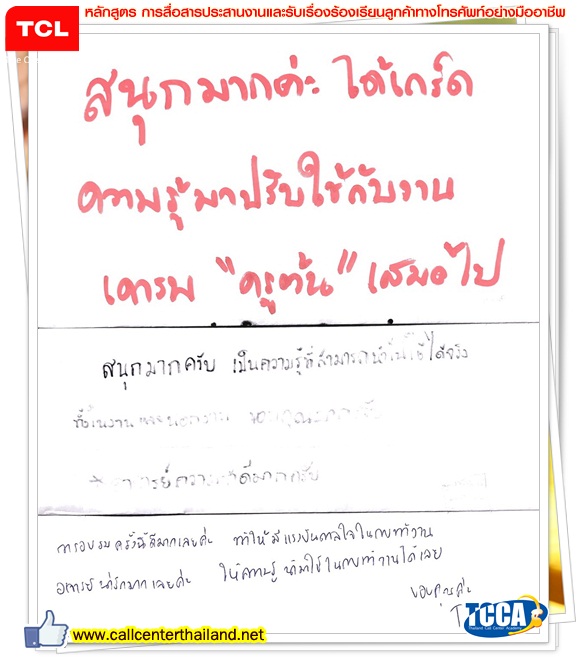 TCL
หลักสูตร การสื่อสารประสานงานและรับเรื่องร้องเรียนลูกค้าทางโทรศัพท์อย่างมืออาชีพ
สนุกมากค่ะ ได้เกร็ด
ความรู้มาปรับใช้กับงาน
เคารพ "ครูต้น" เสมอไป
สนุกมากครับ เป็นความรู้ที่สามารถนำไปใช้ได้จริง
ทั้งในงานและนอกงาน
การอบรมครั้งนี้ดีมากเลยค่ะ ทำให้มีแรงบันดาลใจในการทำงาน
อาจารย์น่ารักมากเลยค่ะ ให้ความรู้ นำมาใช้ในการทำงานได้เลย
ขอบคุณค่ะ
TCCA
Thailand Call Center Academy
www.callcenterthailand.net